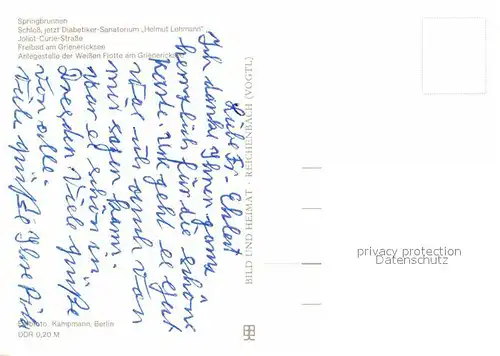 Springbrunnen
Schloß, jetzt Diabetiker-Sanatorium „Helmut Lehmann"
Joliot-Curie-Straße
Freibad am Grienericksee
Anlegestelle der Weißen Flotte am Grienericksee
Liebe Fr. Ehlert
Ich danke Ihnen ganz
herzlich für die schöne
Karte. Mir geht es gut
was ich auch von
mir sagen kann.
War es schön in
Dresden Viele Grüße
von alle.
Viele Grüße Ihre
BILD UND HEIMAT · REICHENBACH (VOGTL)
privacy protection
Datenschutz
Kampmann, Berlin
DDR 0,20 M